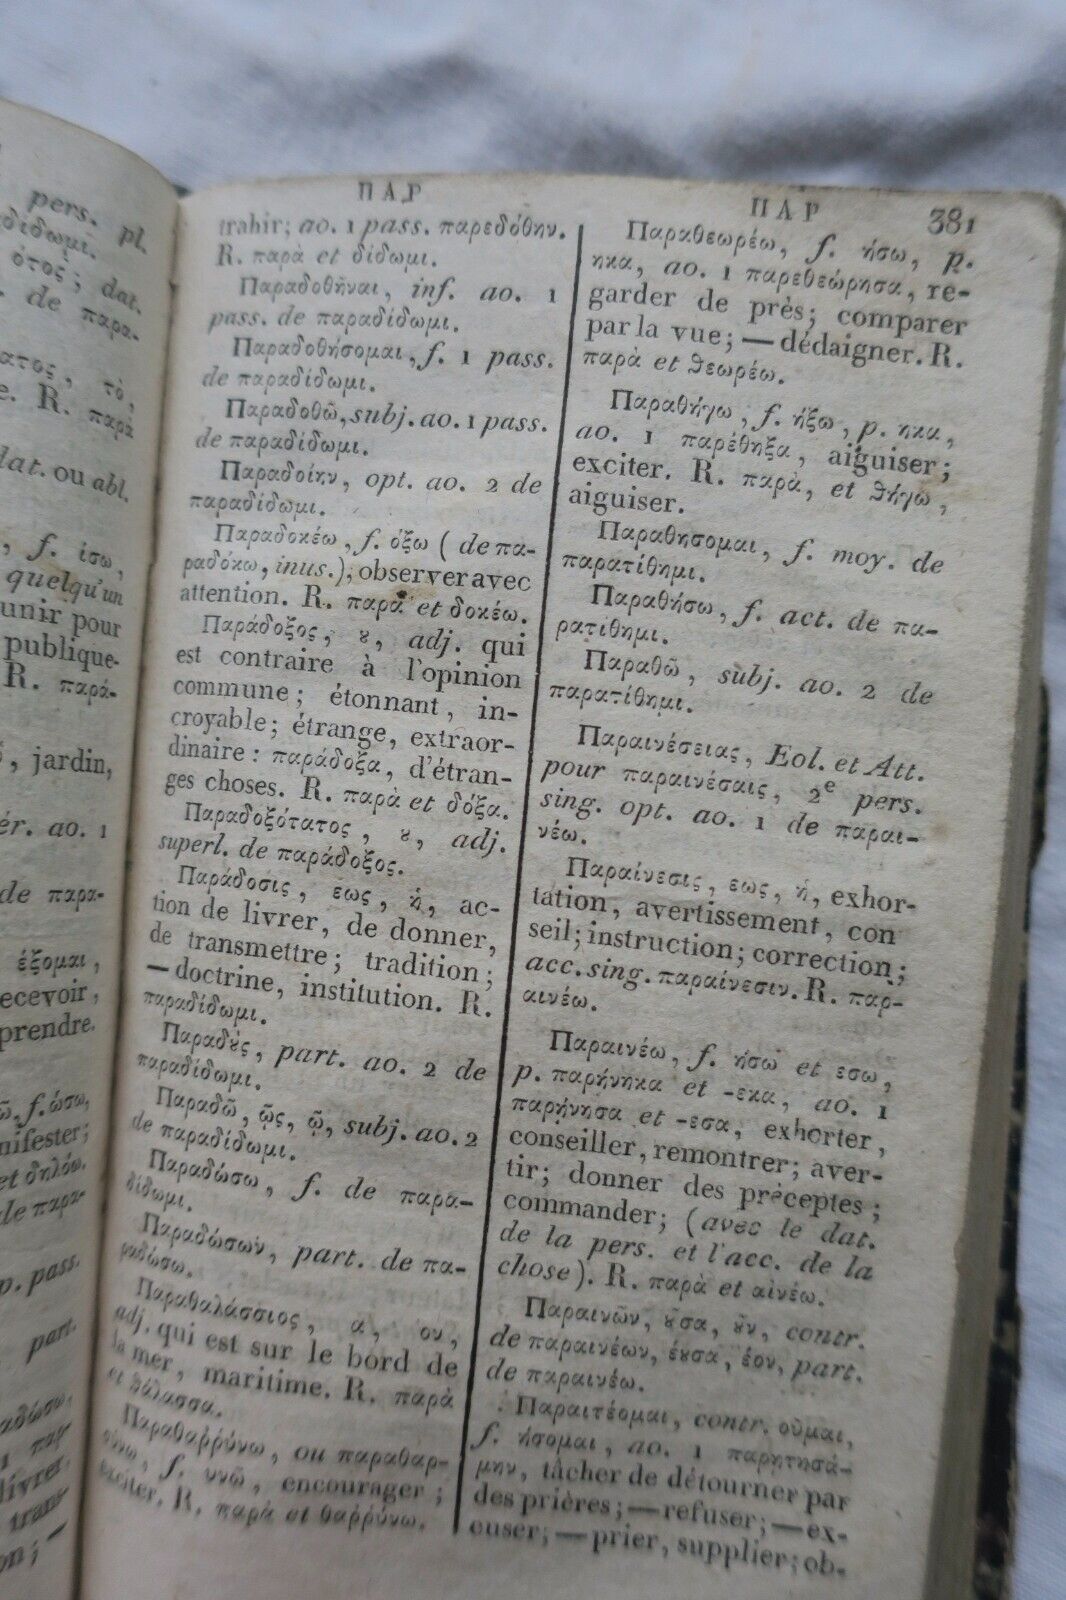 pers. pl.
ότος; dat.
de παρα-
τὸ,
R. παρὰ
dat. ou abl.
f. ίσω,
quelqu'un
unir pour
publique-
R. παρά-
jardin,
ao. 1
de παρα-
έξομαι,
ecevoir,
prendre.
f. ώσω,
nifester;
et δηλόω.
de παρα-
p. pass.
part.
livrer,
tran-
ΠΑΡ
trahir; ao. 1 pass. παρεδόθην.
R. παρὰ et δίδωμι.
Παραδοθῆναι, inf. ao. 1
pass. de παραδίδωμι.
Παραδοθήσομαι, f. 1 pass.
de παραδίδωμι.
Παραδοθῶ, subj. ao. 1 pass.
de παραδίδωμι.
Παραδοίην, opt. ao. 2 de
παραδίδωμι.
Παραδοκέω, f. όξω (de πα-
ραδόκω, inus.), observer avec
attention. R. παρὰ et δοκέω.
Παράδοξος, ȣ, adj. qui
est contraire à l'opinion
commune; étonnant, in-
croyable; étrange, extraor-
dinaire: παράδοξα, d'étran-
ges choses. R. παρὰ et δόξα.
Παραδοξότατος, ȣ, adj.
superl. de παράδοξος.
Παράδοσις, εως, ἡ, ac-
tion de livrer, de donner,
de transmettre; tradition;
—doctrine, institution. R.
παραδίδωμι.
Παραδȣ́ς, part. ao. 2 de
παραδίδωμι.
Παραδῶ, ῷς, ῷ, subj. ao. 2
de παραδίδωμι.
Παραδώσω, f. de παρα-
δίδωμι.
Παραδώσων, part. de πα-
ραδώσω.
Παραθαλάσσιος, α, ον,
adj. qui est sur le bord de
la mer, maritime. R. παρὰ
et θάλασσα.
Παραθαῤῥύνω, ou παραθαρ-
σύνω, f. υνῶ, encourager;
exciter. R. παρὰ et θαῤῥύνω.
ΠΑΡ 381
Παραθεωρέω, f. ήσω, p.
ηκα, ao. 1 παρεθεώρησα, re-
garder de près; comparer
par la vue; — dédaigner. R.
παρὰ et ϑεωρέω.
Παραθήγω, f. ήξω, p. ηκα,
ao. 1 παρέθηξα, aiguiser;
exciter. R. παρὰ, et ϑήγω,
aiguiser.
Παραθησομαι, f. moy. de
παρατίθημι.
Παραθήσω, f. act. de πα-
ρατίθημι.
Παραθῶ, subj. ao. 2 de
παρατίθημι.
Παραινέσειας, Eol. et Att.
pour παραινέσαις, 2e pers.
sing. opt. ao. 1 de παραι-
νέω.
Παραίνεσις, εως, ἡ, exhor-
tation, avertissement, con
seil; instruction; correction;
acc. sing. παραίνεσιν. R. παρ-
αινέω.
Παραινέω, f. ήσω et εσω,
p. παρήνηκα et -εκα, ao. 1
παρήνησα et -εσα, exhorter,
conseiller, remontrer; aver-
tir; donner des préceptes;
commander; (avec le dat.
de la pers. et l'acc. de la
chose). R. παρὰ et αἰνέω.
Παραινῶν, ȣ͂σα, ȣ͂ν, contr.
de παραινέων, έȣσα, έον, part.
de παραινέω.
Παραιτέομαι, contr. οῦμαι,
f. ήσομαι, ao. 1 παρητησά-
μην, tâcher de détourner par
des prières;—refuser;—ex-
cuser; — prier, supplier; ob-